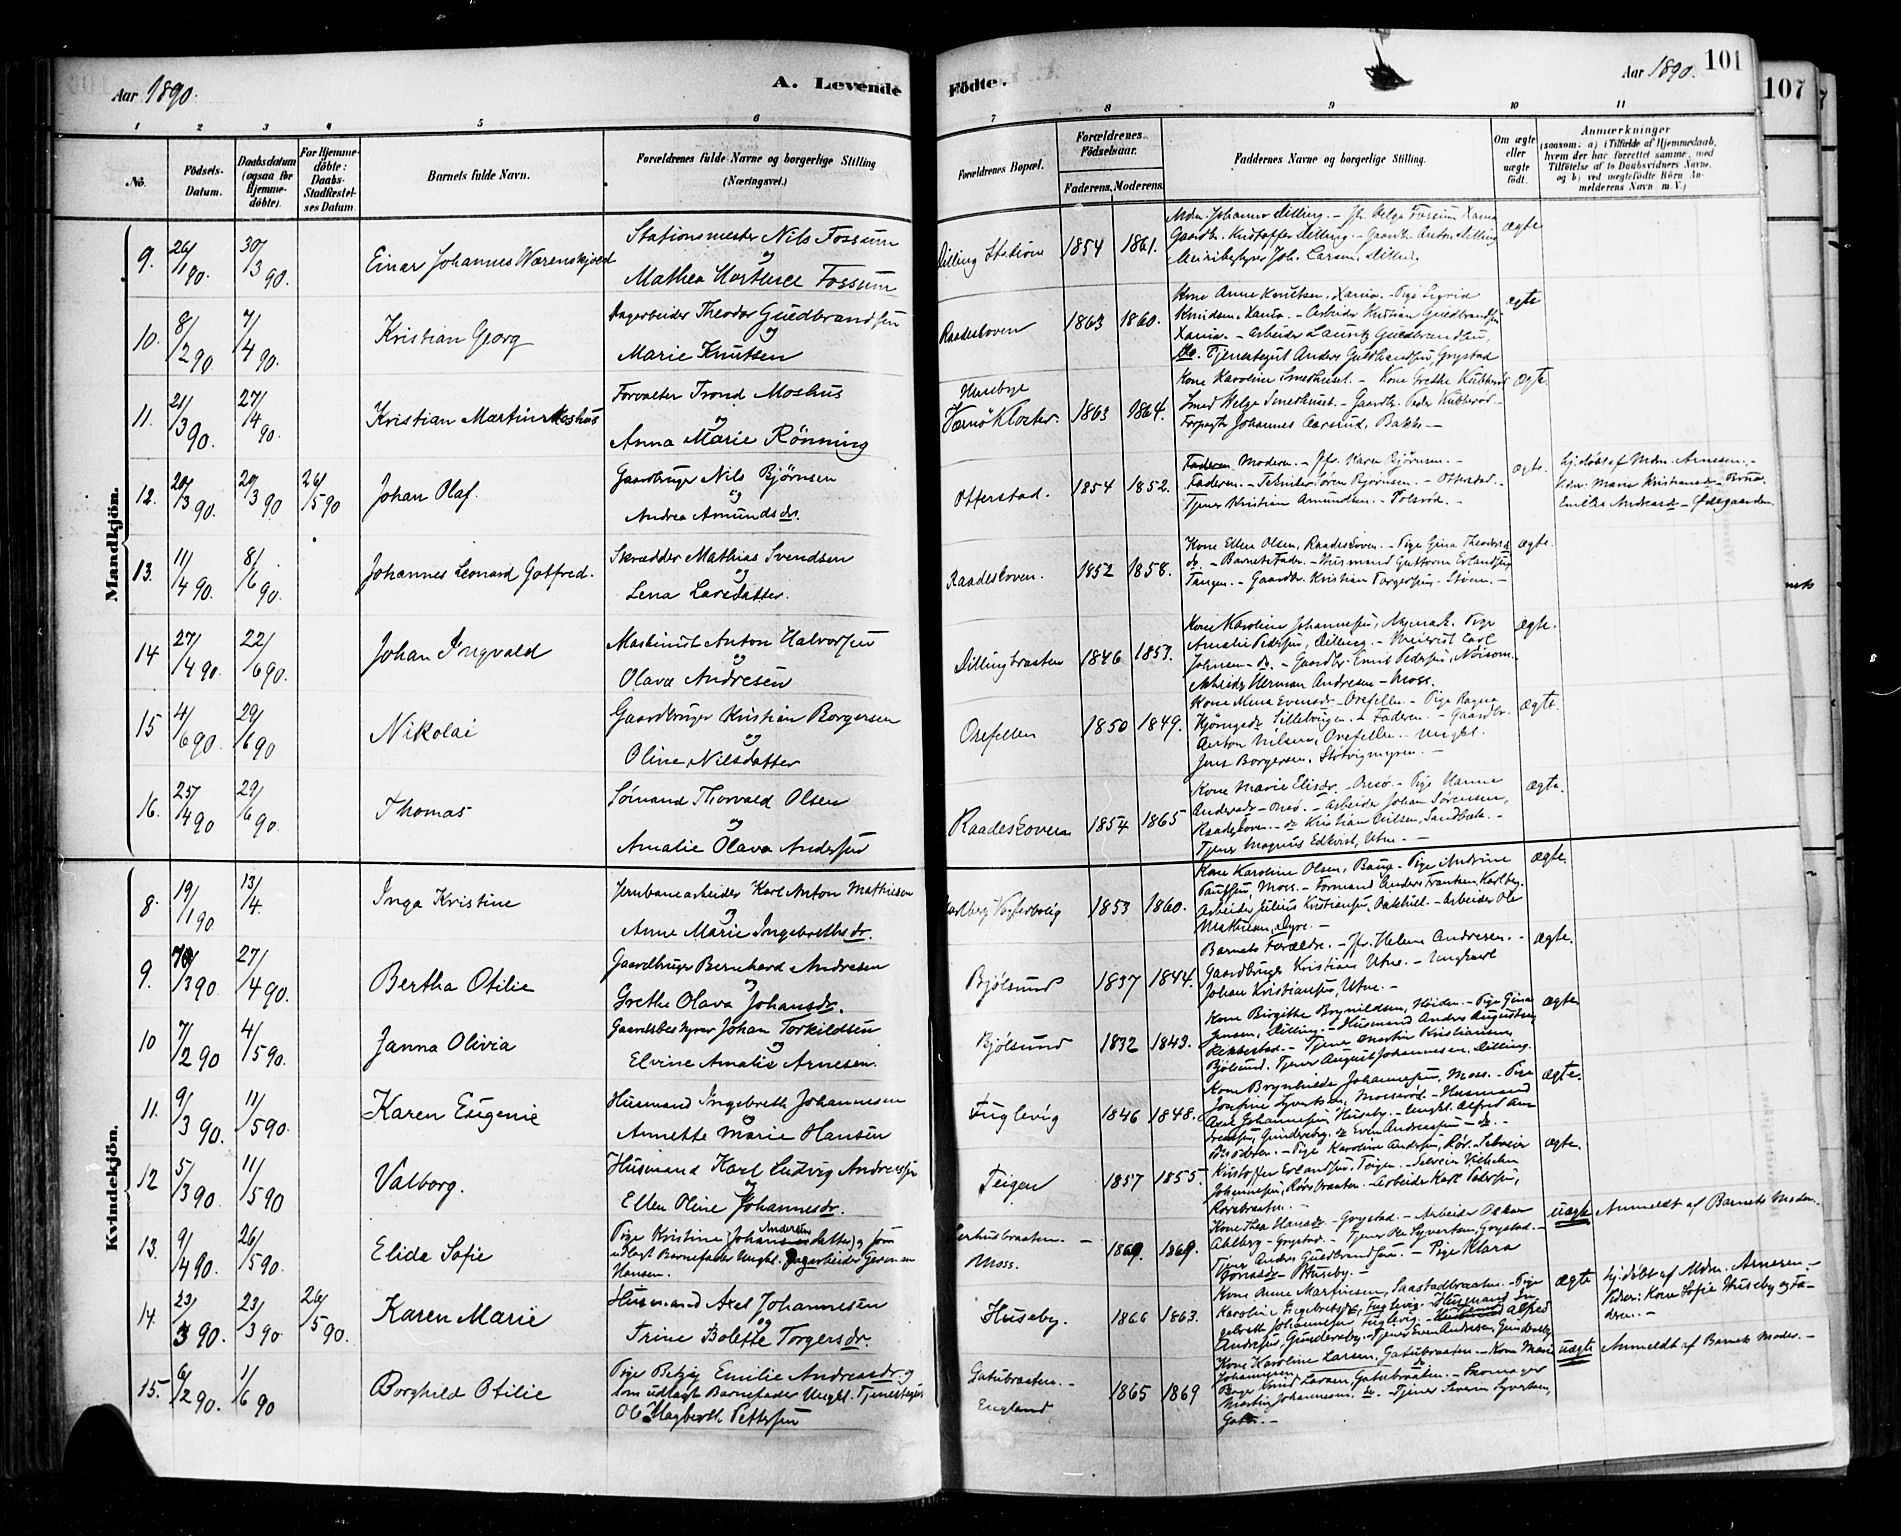 Aar 1890.
A. Levende
Födte.
Aar 1890.
101
107
1 2 3 4 5 6
7 8 9 10 11
No.
Födsels-
Datum.
Daabsdatum
(ogsaa för
Hjemme-
döbte).
For Hjemme-
döbte:
Daabs-
Stadfæstel-
ses Datum
Barnets fulde Navn.
Forældrenes fulde Navne og borgerlige Stilling
(Næringsvei.)
Forældrenes Bopæl.
Forældrenes
Födselsaar.
Faderens. Moderens.
Faddernes Navne og borgerlige Stilling.
Om ægte
eller
uægte
födt.
Anmærkninger
(saasom: a) i Tilfælde af Hjemmedaab,
hvem der har forrettet samme, med
Tilföielse af to Daabsvidners Navne,
og b) ved uægtefödte Börn An-
melderens Navn m. V.)
Mandkjön.
9. 26/1 90. 30/3 90. Einar Johannes Wærenskjold
Stationsmester Nils Fossum
og
Mathea Fossum
Dilling Station 1854 1861.
Mdm. Johanne Dilling. - Fr. Helga Fossum Xania
Gaardb. Kristoffer Dilling. - Gaardb. Anton Dilling
Meieribestyrer Joh. Larsen, Dilling.
ægte
10. 8/2 90. 7/4 90. Kristian Georg
Dagarbeider Theodor Guldbrandsen
og
Marie Knutsen
Raadeskoven 1863 1860.
Kone Anne Knutsen, Xania. - Pige Sigrid
Knudsen, Xania. - Arbeider Kristian Guldbrandsen
Xania. - Arbeider Lauritz Guldbrandsen,
do. Tjenestegut Anders Guldbrandsen, Grystad
ægte
11. 21/3 90. 27/4 90. Kristian Martin Moshus
Forvalter Trond Moshus
og
Anna Marie Rönning
Huseby
Værnø Kloster. 1863 1864.
Kone Karoline Smedhuset. - Kone Grethe Kubberød
Smed Helge Smedhuset. - Gaardb. Peder Kubberød -
Forpagter Johannes Aarsrud, Bakke -
ægte
12. 20/3 90. 20/3 90 26/5 90 Johan Olaf.
Gaardbruger Nils Bjørnsen
og
Andrea Amundsdr.
Otterstad. 1854 1852.
Moderen. - Jfr. Karen Bjørnsen. -
Faderen. - Tekniker Søren Bjørnsen. - Otterstad. -
Tjener Kristian Amundsen. -
ægte.
hj. døbt af Mdm. Arnesen. -
Vidner: Marie Kristiansdr -
Emilie Andreasdr - Ødegaarden
13. 11/4 90. 8/6 90. Johannes Leonard Gotfred.
Skrædder Mathias Svendsen
og
Lena Larsdatter.
Raadeskoven. 1852 1858.
Kone Ellen Olsen, Raadeskoven. - Pige Gina Theodors
dr. - Barnets Fader. - Husmand Guttorm Erlandsen
Tangen. - Gaardbr. Kristian Torgersen - Støtne. -
ægte.
14 27/4 90. 22/6 90. Johan Ingvald
Maskinist Anton Halvorsen
og
Olava Andresen
Dillingbraaten 1846 1853.
Kone Karoline Johannesen, Pige
Amalie Pedersen, Dilling. - Carl
Johnsen - do. - Gaardbr. Emil Pedersen,
Arbeider Herman Andresen - Moss.
ægte.
15 4/6 90. 29/6 90 Nikolai
Gaardbruger Kristian Borgersen
og
Oline Nilsdatter
Orefellen 1850 1849.
Kone Mina Evensdr - Orefellen - Pige Ragna
Faderen. - Gaardbr.
Anton Nilsen, Orefellen. - Ungkl.
Jens Borgersen,
ægte.
16. 25/4 90 29/6 90. Thomas
Sømand Thorvald Olsen
og
Amalie Olava Andersen
Raadeskoven 1854 1865
Kone Marie Elisdr. - Onsø. - Pige Hanne
Andersdr - Onsø. - Arbeider Johan Sørensen,
Raadeskoven. - do Kristian Nilsen, Sandbæk. -
Tjener Magnus Edkvist, Utne. -
ægte.
Kvindekjön.
8. 19/1 90 13/4. Inga Kristine
Jernbanearbeider Karl Anton Mathiesen
og
Anne Marie Ingebrethsdr.
Karlberg Vogterbolig 1853 1860.
Kone Karoline Olsen, - Pige Andrine
Paulsen, Moss. - Formand Anders Fransen, Karlberg.
Arbeider Julius Kristiansen, - Arbeider Ole
Mathiesen, Dyre. -
ægte.
9. 10/3 90 27/4 90. Bertha Otilie
Gaardbruger Bernhard Andresen
og
Grethe Olava Johansdr.
Bjølsund 1837 1844.
Barnets Forældre. - Jfr. Helene Andresen. -
Gaardbruger Kristian Utne. - Ungkarl
Johan Kristiansen, Utne. -
ægte.
10 7/2 90 4/5 90. Janna Olivia
Gaardsbestyrer Johan Torkildsen
og
Elvine Amalie Arnesen.
Bjølsund 1832 1843.
Kone Birgithe Brynildsen, Høiden. - Pige Gina
Jensen, Dilling. - Husmand Andres Augustsen,
Rikkestad. - Tjener Martin Kristiansen,
Bjølsund. Tjener August Johannesen, Dilling.
ægte
11. 9/3 90. 11/5 90. Karen Eugenie
Husmand Ingebreth Johannesen
og
Annette Marie Hansen
Fuglevig 1846 1848.
Kone Brynhilde Johannesen, Moss. - Pige
Josefine Syvertsen, Mosserød. - Husmand
Axel Johannesen, Huseby. - Ungkl. Alfred An-
dresen, Gunderseby. do Even Andreassen - do. -
ægte.
12 5/3 90. 11/5 90 Valborg.
Husmand Karl Ludvig Andreassen
og
Ellen Oline Johannesdr.
Teigen 1857 1855.
Pige Karoline Andersen, Rør. Selveier
Kristoffer Erlandsen, Teigen. - Selveier Vilhelm
Johannesen, Rørebraaten. - Arbeider Karl Pedersen,
Rørebraaten. -
ægte.
13. 9/4 90. 26/5 90. Elida Sofie
Andersen
Pige Kristine Johansdatter og som
udlagt Barnefader Ungkl. Dagarbeider German
Hansen.
Moss. 1869. 1869.
Kone Thea Hansdr - Grystad. - Arbeider Oskar
Ahlberg - Grystad. - Tjener Ole Syvertsen Grystad. -
Tjener Andres Guldbrandsen. - Pige Klara
Jonasdr - Huseby. -
uægte
Anmeldt af Barnets Moder.
14. 23/3 90. 23/3 90. 26/5 90. Karen Marie
Husmand Axel Johannesen
og
Trine Bolette Torgersdr.
Huseby. 1866 1863.
Kone Anne Martinsen, Saastadbraaten. - Pige
Karoline Ingebretsen, Fuglevig. - Husmand In-
gebreth Johannesen Fuglevig. - Alfred
Andresen, Gunderseby. - Tjener Even Andresen, Gunderseby
ægte
hj. døbt af Mdm. Arnesen. -
Vidner: Kone Sofie Huseby og Fa-
deren. -
15. 6/2 90. 1/6 90 Borghild Otilie
Pige Betzy Emilie Andreasdr. og
som udlagt Barnefader Ungkl. Tjenestegut
Ole Hagbarth Pettersen
Gatubraaten. -
England 1865 1869
Kone Karoline Larsen, Gatubraaten - Kone Marie
Johannesen do
Knud Larsen, Gatubraaten. - Skomager
Martin Johannesen. do. - Tjener Severin Syvertsen,
Gatu. -
uægte
Anmeldt af Barnets Moder. -